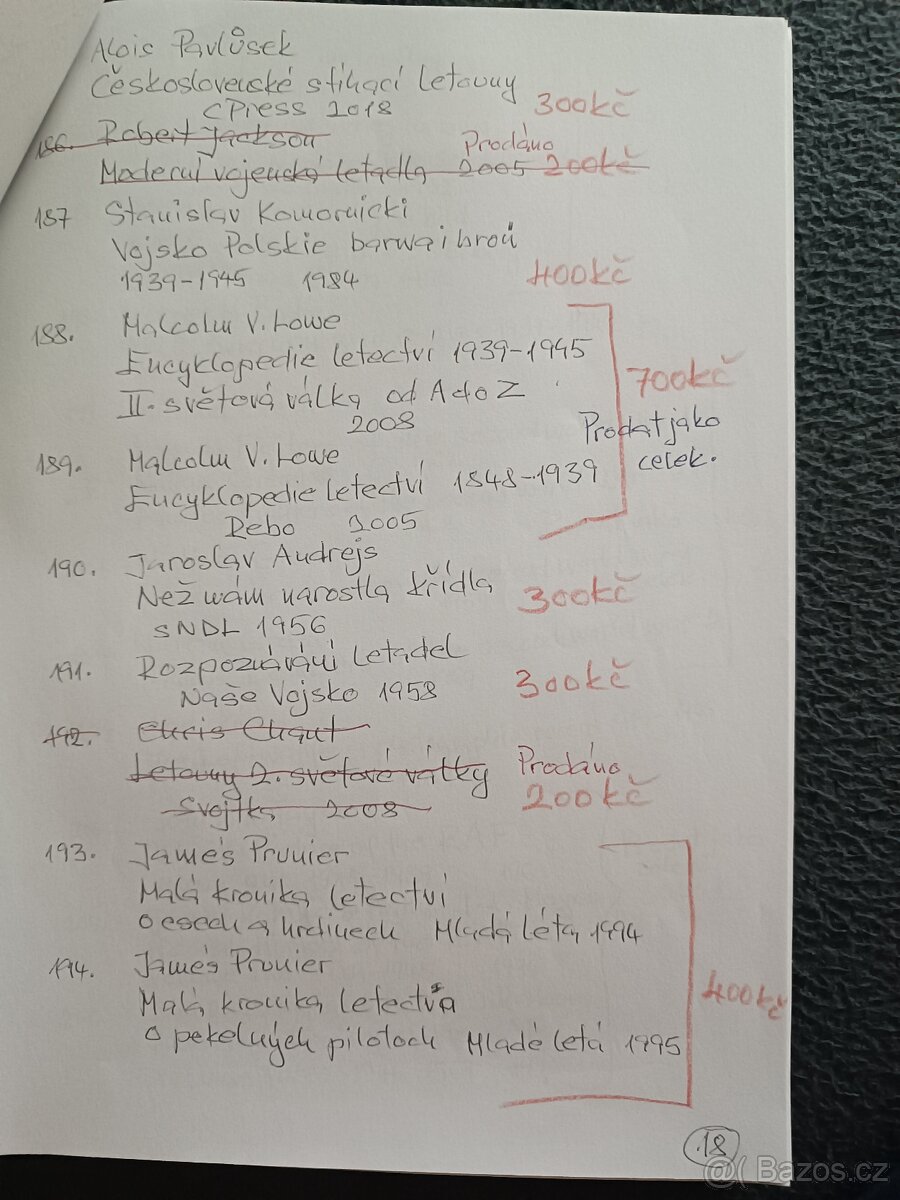 Alois Pavlůsek
Československé stíhací letouny
CPress 2018 300kč
186. Robert Jackson
Prodáno
Moderní vojenská letadla 2005 200kč
187 Stanislav Komornicki
Vojsko Polskie barwa i broń
1939-1945 1984 400kč
188. Malcolm V. Lowe
Encyklopedie letectví 1939-1945
II. světová válka od A do Z 700kč
2008 Prodat jako
189. Malcolm V. Lowe celek.
Encyklopedie letectví 1848-1939
Rebo 2005
190. Jaroslav Andrejs
Než wám narostla křídla 300kč
SNDL 1956
191. Rozpoznávání letadel
Naše Vojsko 1958 300kč
192. Chris Chant
Letouny 2. světové války Prodáno
Svojtka 2008 200kč
193. James Prunier
Malá kronika letectví
o esech a hrdinech Mladá léta 1994
194. James Prunier
Malá kronika letectva 400kč
o pekelných pilotoch Mladé letá 1995
18
@( Bazos.cz